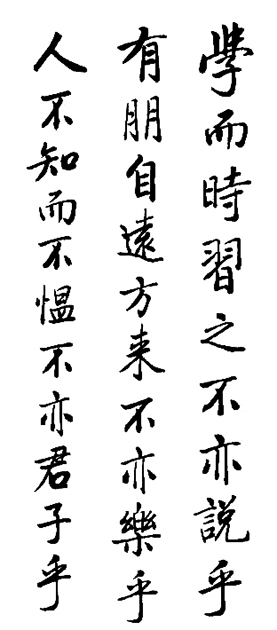 學而時習之不亦説乎
有朋自遠方来不亦樂乎
人不知而不愠不亦君子乎